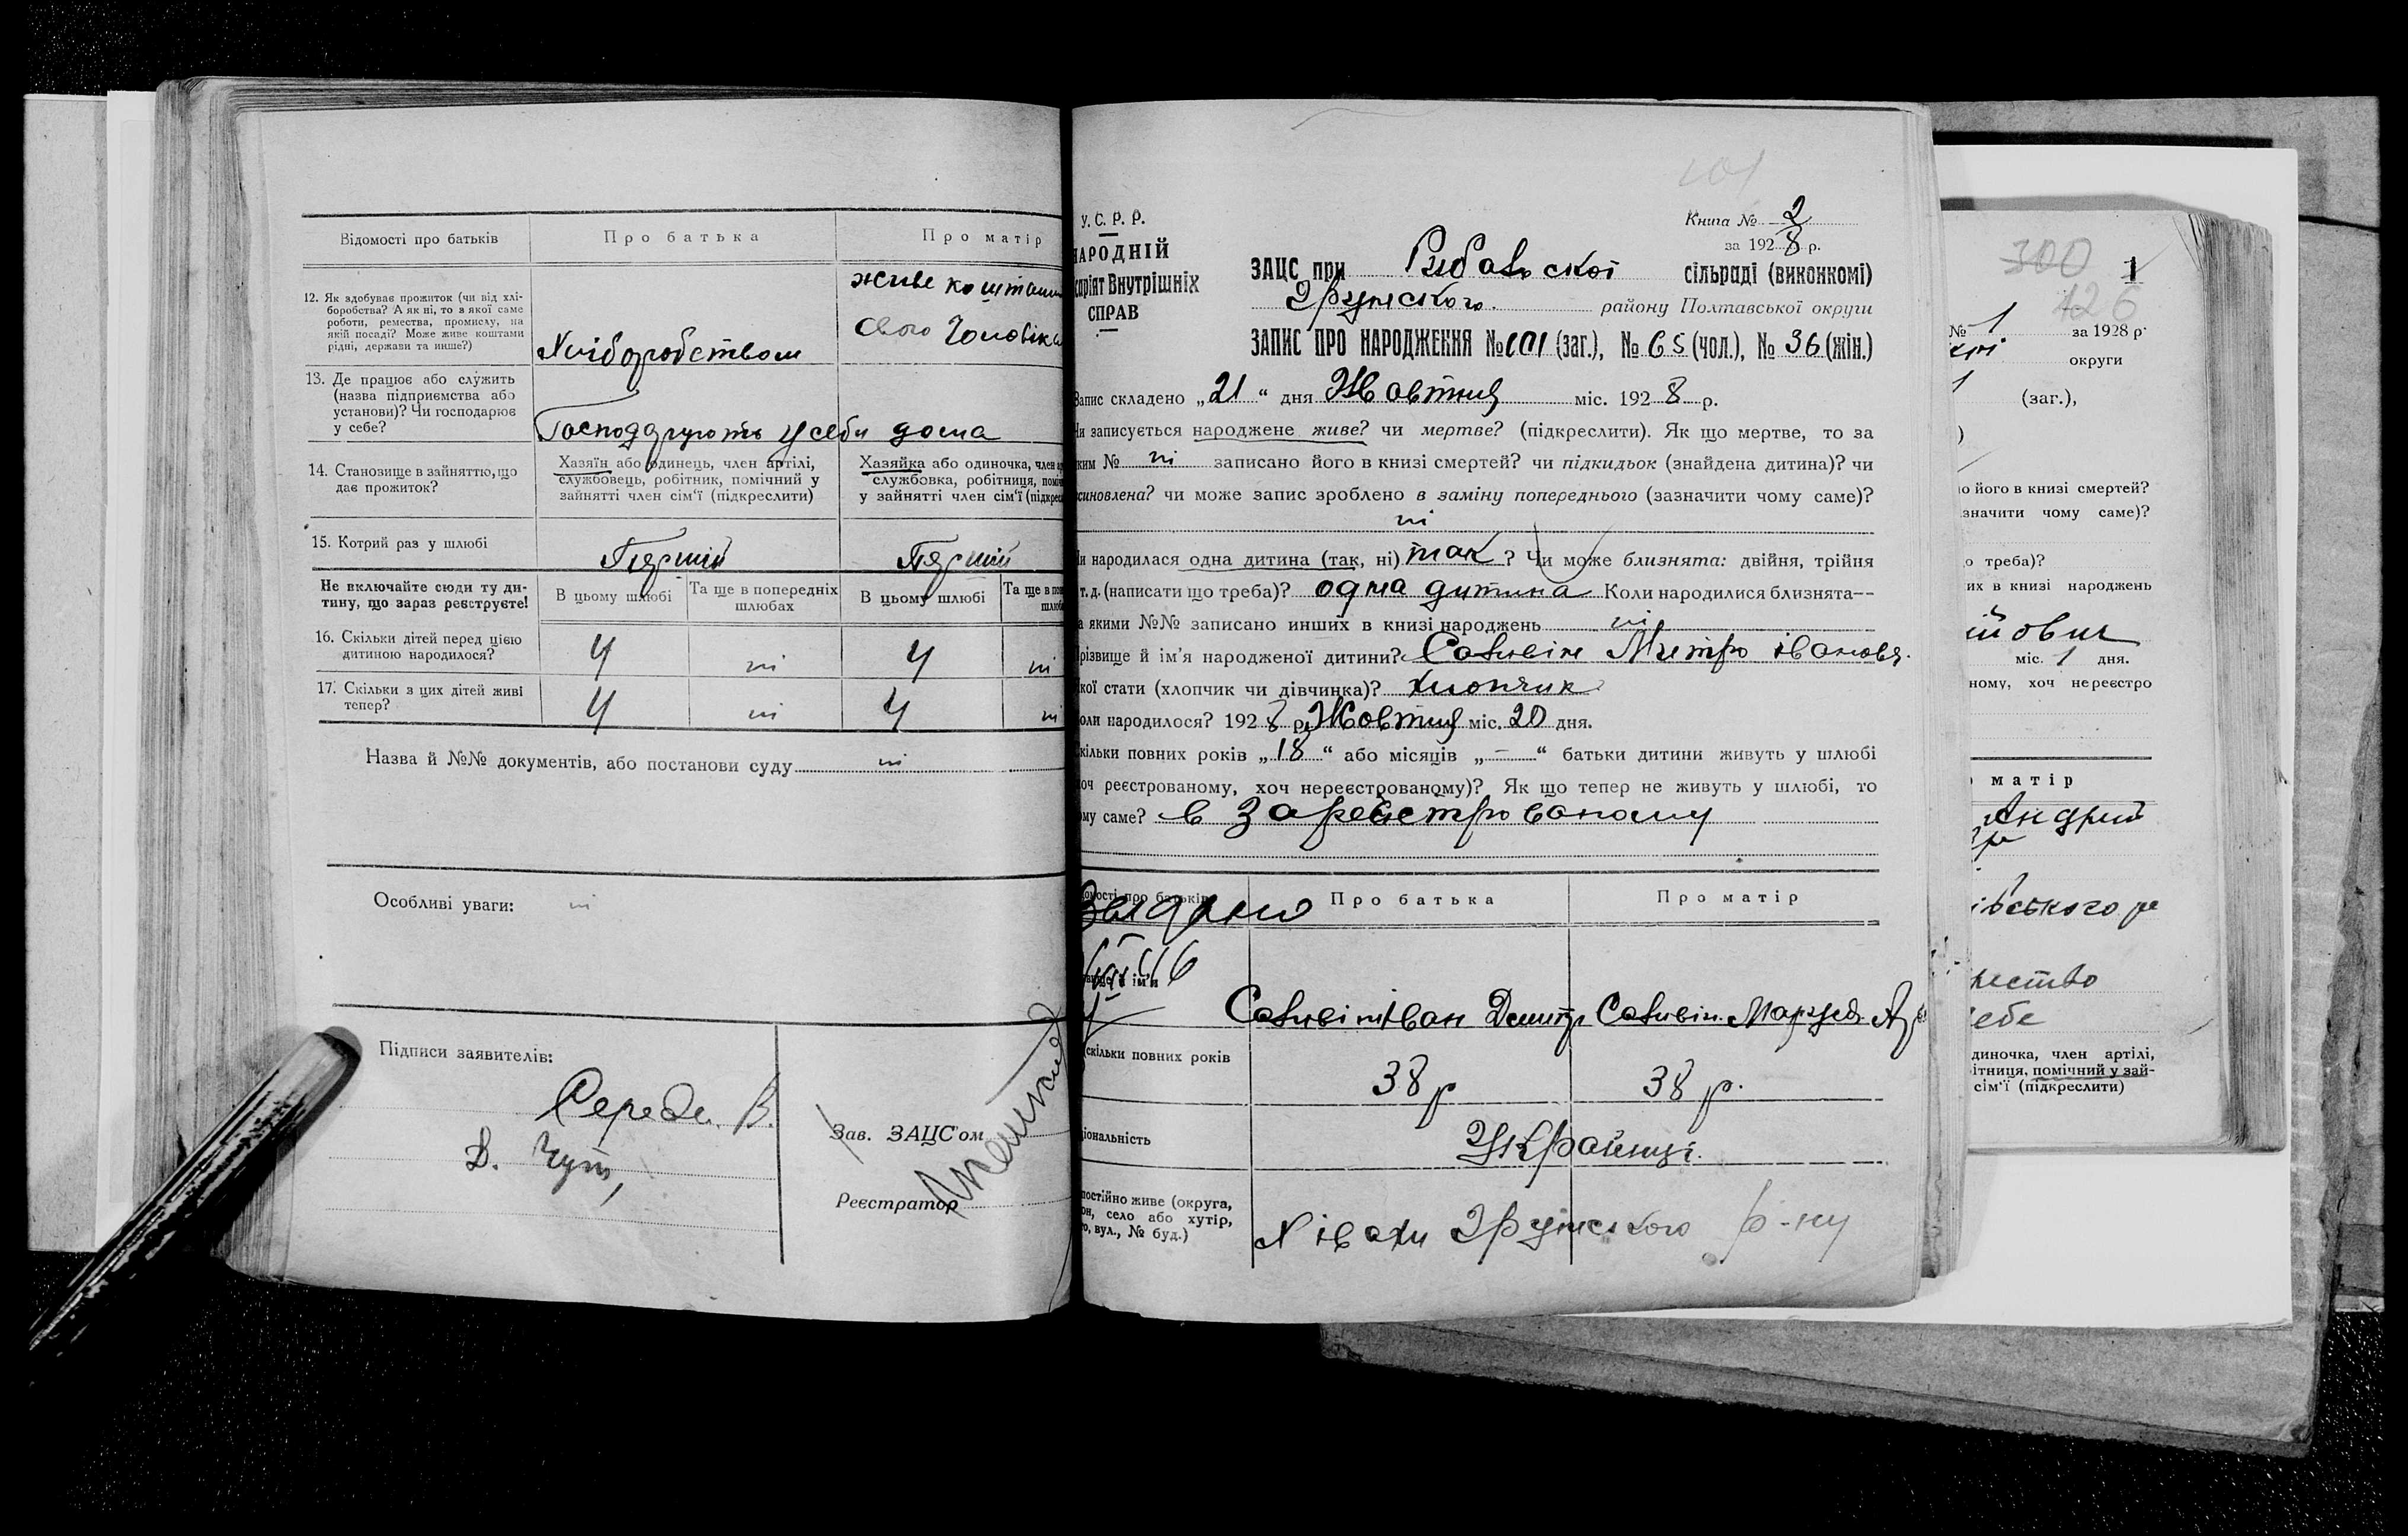 Відомості про батьків
Про батька
Про матір
12. Як здобуває прожиток (чи від хлі-
боробства? А як ні, то з якої саме
роботи, ремества, промислу, на
якій посаді? Може живе коштами
рідні, держави та инше?)
Хліборобством
живе коштами
свого Чоловіка
13. Де працює або служить
(назва підприємства або
установи)? Чи господарює
у себе?
Господарують у себи дома
14. Становище в зайняттю, що
дає прожиток?
Хазяїн або одинець, член артілі,
службовець, робітник, помічний у
зайнятті член сім'ї (підкреслити)
Хазяйка або одиночка, член
службовка, робітниця,
у зайнятті член сім'ї
15. Котрий раз у шлюбі
Перший
Перший
Не включайте сюди ту ди-
тину, що зараз реєструєте!
В цьому шлюбі
Та ще в попередніх
шлюбах
В цьому шлюбі
Та ще в
16. Скільки дітей перед цією
дитиною народилося?
4 ні 4 ні
17. Скільки з цих дітей живі
тепер?
4 ні 4 ні
Назва й №№ документів, або постанови суду ні
Особливі уваги: ні
Підписи заявителів:
Середа В.
Д.
Зав. ЗАЦС'ом
Реєстратор
101
У.С.Р.Р.
АРОДНІЙ
аріят Внутрішніх
СПРАВ
Книга № 2
за 1928 р.
ЗАЦС при Рибальскої сільраді (виконкомі)
Грунського району Полтавської округи
ЗАПИС ПРО НАРОДЖЕННЯ № 101 (заг.), № 65 (чол.), № 36 (жін.)
Запис складено „21“ дня Жовтня міс. 1928 р.
Чи записується народжене живе? чи мертве? (підкреслити). Як що мертве, то за
яким № ні записано його в книзі смертей? чи підкидьок (знайдена дитина)? чи
усиновлена? чи може запис зроблено в заміну попереднього (зазначити чому саме)?
ні
Чи народилася одна дитина (так, ні) так ? Чи може близнята: двійня, трійня
т. д. (написати що треба)? одна дитина Коли народилися близнята—
за якими №№ записано инших в книзі народжень ні
Прізвище й ім'я народженої дитини? Саввін Митро
якої стати (хлопчик чи дівчинка)? хлопчик
Коли народилося? 1928 р. Жовтня міс. 20 дня.
Скільки повних років „18“ або місяців „—“ батьки дитини живуть у шлюбі
хоч реєстрованому, хоч нереєстрованому)? Як що тепер не живуть у шлюбі, то
чому саме? в зареєстрованому
Про батька
Про матір
Видано
Саввін Іван Дмитр
Саввін
скільки повних років
38 р
38 р.
Українці.
постійно живе (округа,
он, село або хутір,
вул., № буд.)
Хівахи Грунського р-ну
300
126
1
№ 1 за 1928 р.
округи
1 (заг.),
о його в книзі смертей?
значити чому саме)?
о треба)?
их в книзі народжень
міс. 1 дня.
ному, хоч нереєстро
матір
Андрій
ївського
себе
диночка, член артілі,
ітниця, помічний у зай-
сім'ї (підкреслити)